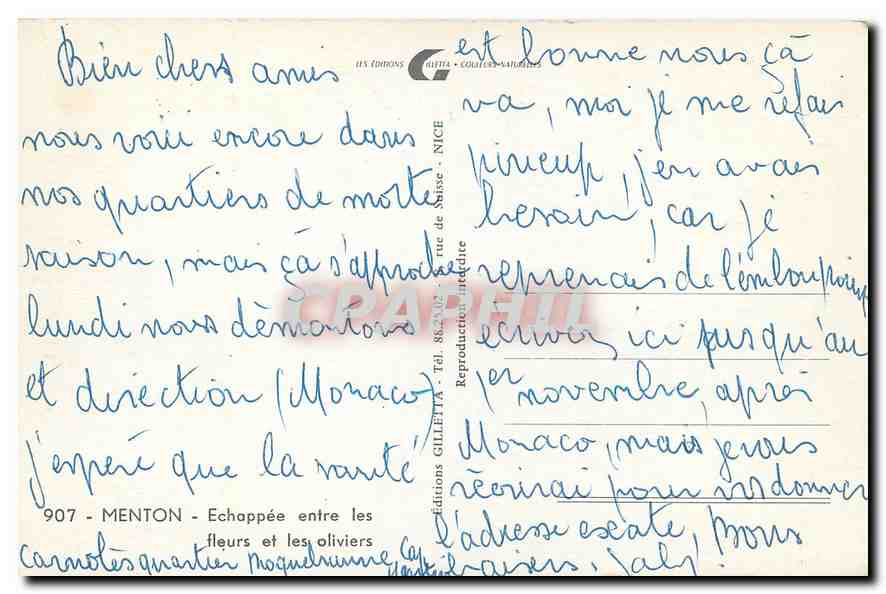 Bien chers amis
nous voici encore dans
nos quartiers de morte
saison, mais çà s'approche
lundi nous démontons
et direction (Monaco)
j'espère que la santé
est bonne nous çà
va, moi je me refais
j'en avais
besoin, car je
reprenais de l'embonpoint
écrivez ici jusqu'au
1er novembre, après
Monaco, mais je vous
récrirai pour vs donner
l'adresse exate, Bons
baisers,
LES EDITIONS GILLETTA • COULEURS NATURELLES
Editions GILLETTA - Tél. 88.25.02 - rue de Suisse - NICE
Reproduction interdite
907 - MENTON - Echappée entre les
fleurs et les oliviers
Carnolès quartier Cap
CPAPHIL